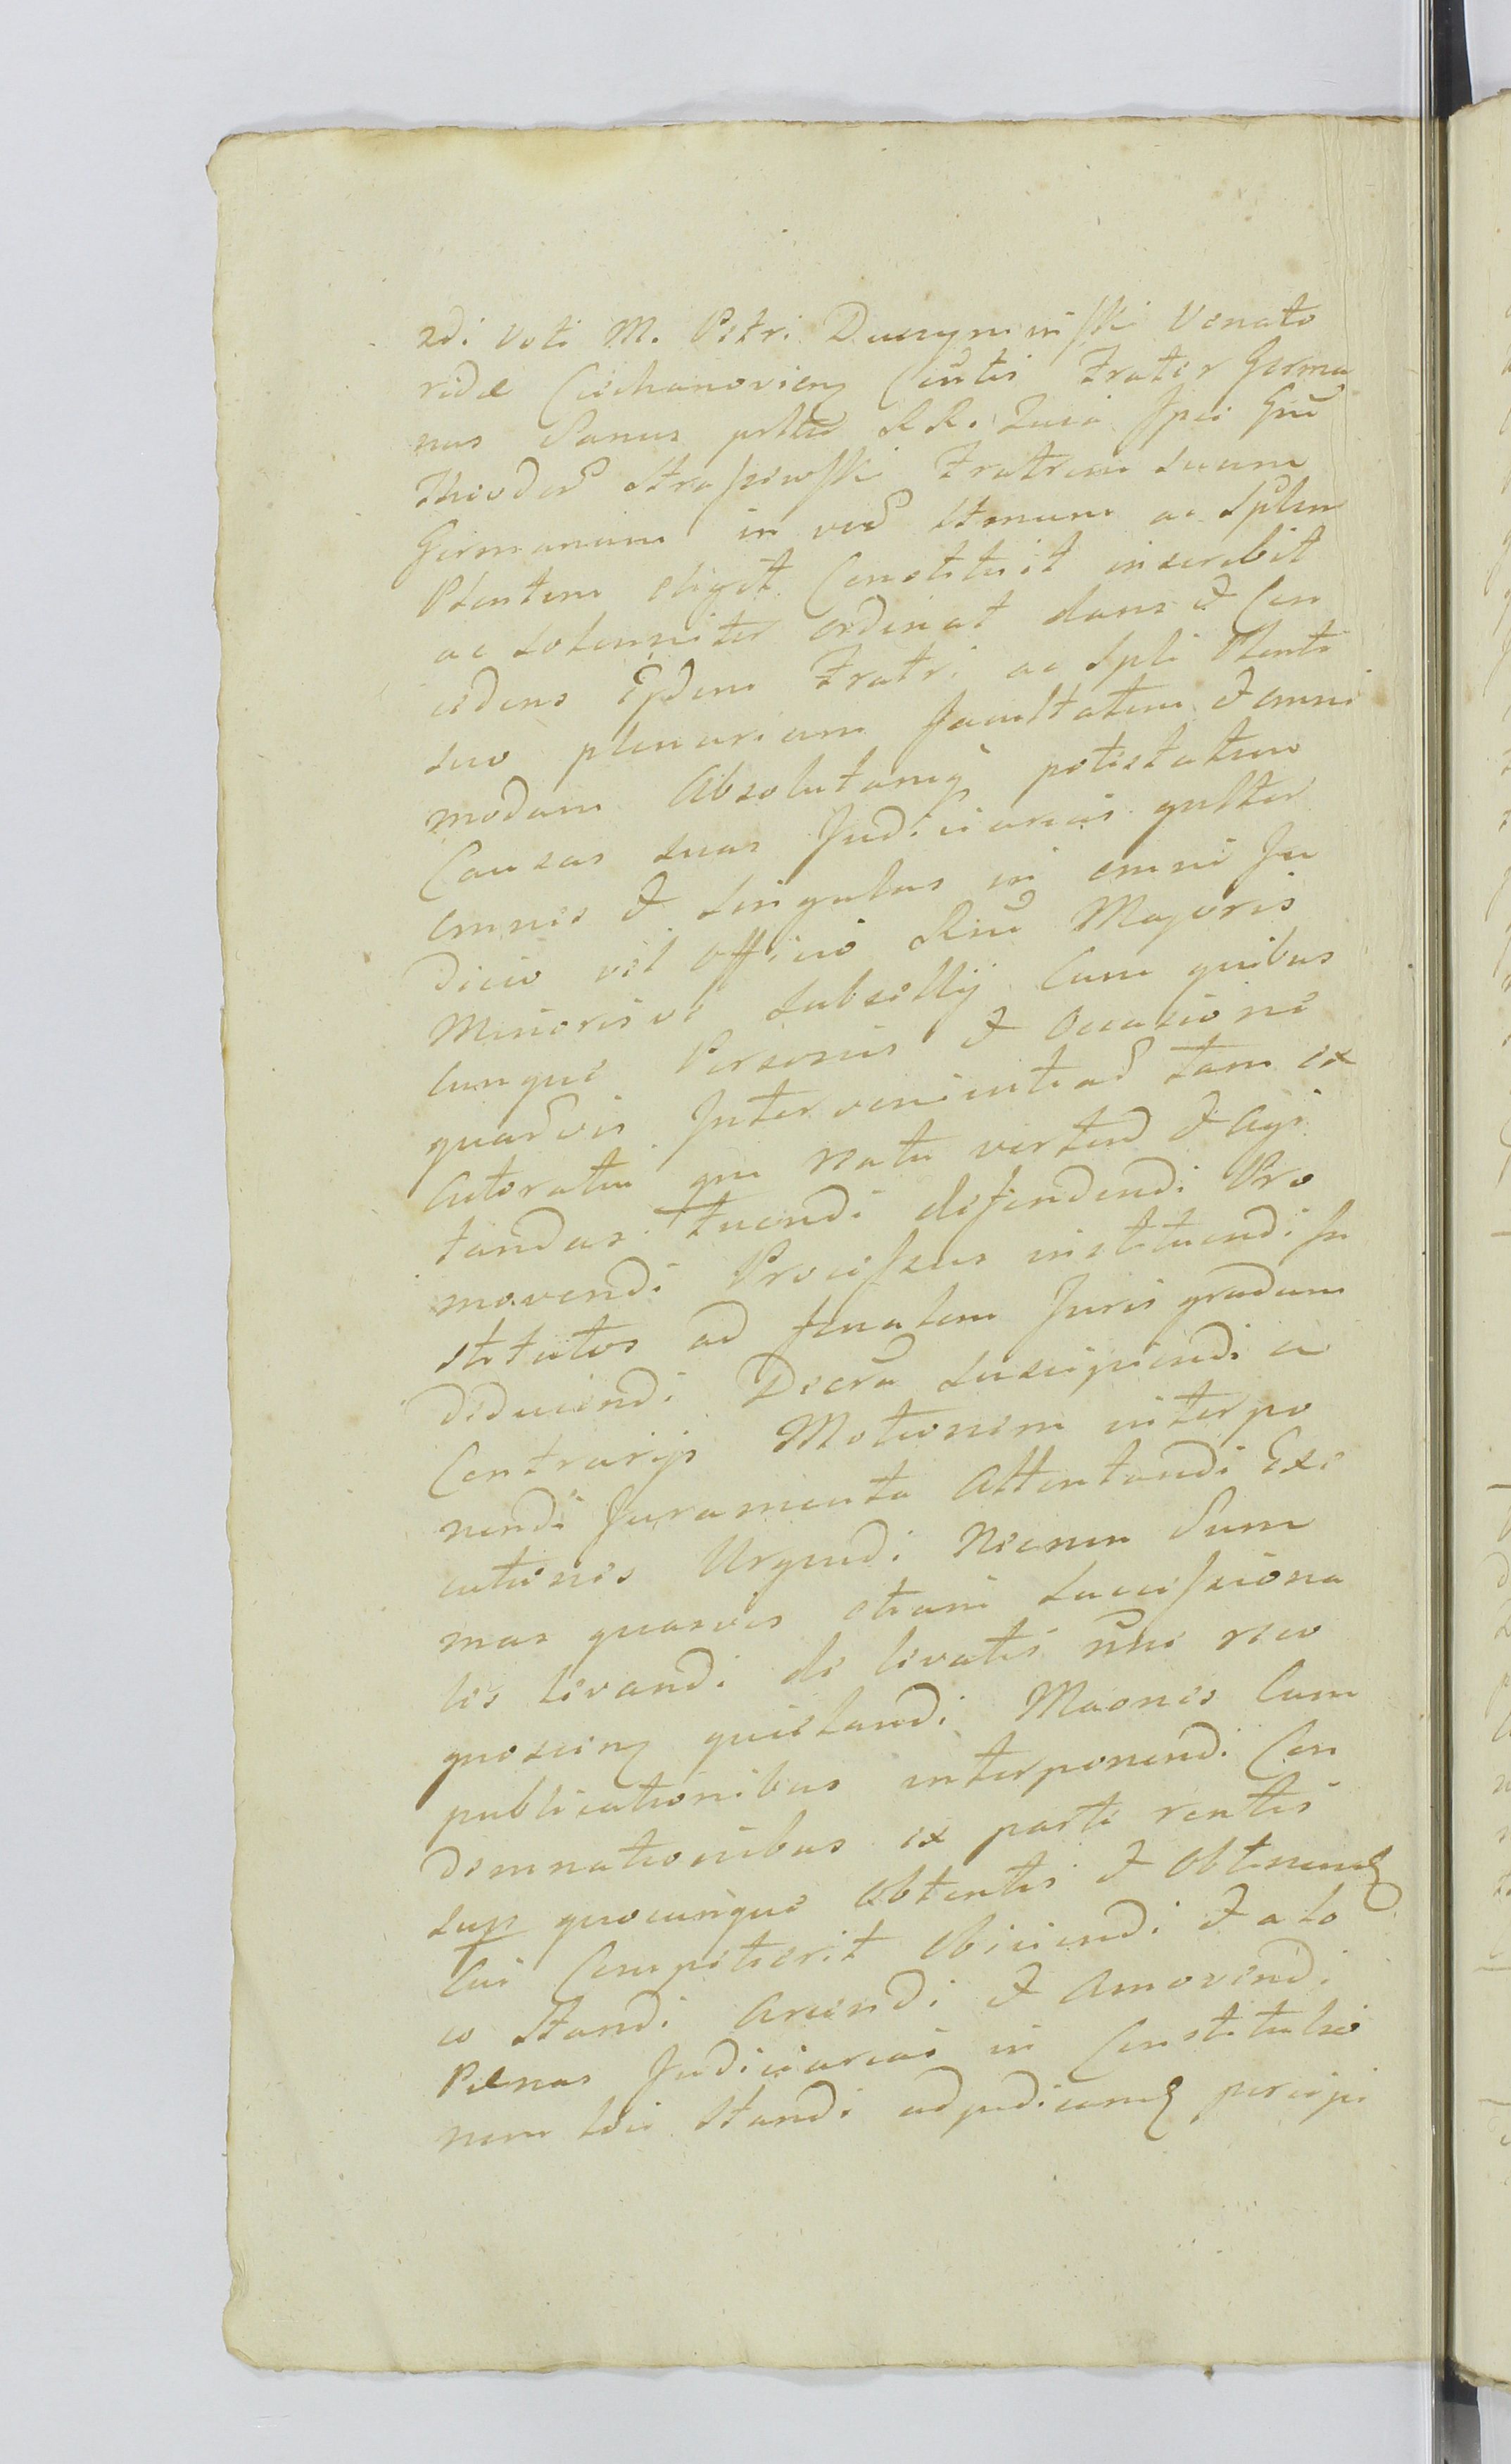 2di Voti M. Petri Duczyminski Venato
ridæ Ciechanovien Cõntis Frater Germa
nus Sanus prtbus RR. Suis Ipsi Gñū
Theodorū Straszewski Fratrem suum
Germanum in verū Ltmum ac Splem
Plentem eligit Constituit inscribit
ac solenniter ordinat dans et Con
cedens Eydem Fratri ac Spli Plenti
suo plenariam facultatem et omni
modam Absolutamq potestatem
Causas suas Judiciarias gnlter
omnes et singulas in omni Ju
dicio vel Officio Rni Majoris
Minorisve Subsellij Cum quibus
cunque Personis et Occasione
quarvis Intervenientiar tam ex
Actoratu qm Reatu verten et Agi
tandas Tuendi defendendi Pro
movendi Processus instituendi In
stitutos ad finalem Juris gradum
deducendi Decra suscipiendi a
Contrarys Motionem interpo
nendi Juramenta Attentandi Exe
cutiones Urgendi Necnon Sum
mas quasvis etiam successiona
les levandi de levatis uni reco
gnoscen quietandi Maones Cum
publicationibus interponendi Con
demnationibus ex parte rentis
sup quocunque Obtentis et Obtinend
Cui Competierit Obiiciendi et a lo
co standi Arcendi et Amovendi
Pænas Judiciarias in Constitutio
nem loci standi adjudicand percipi